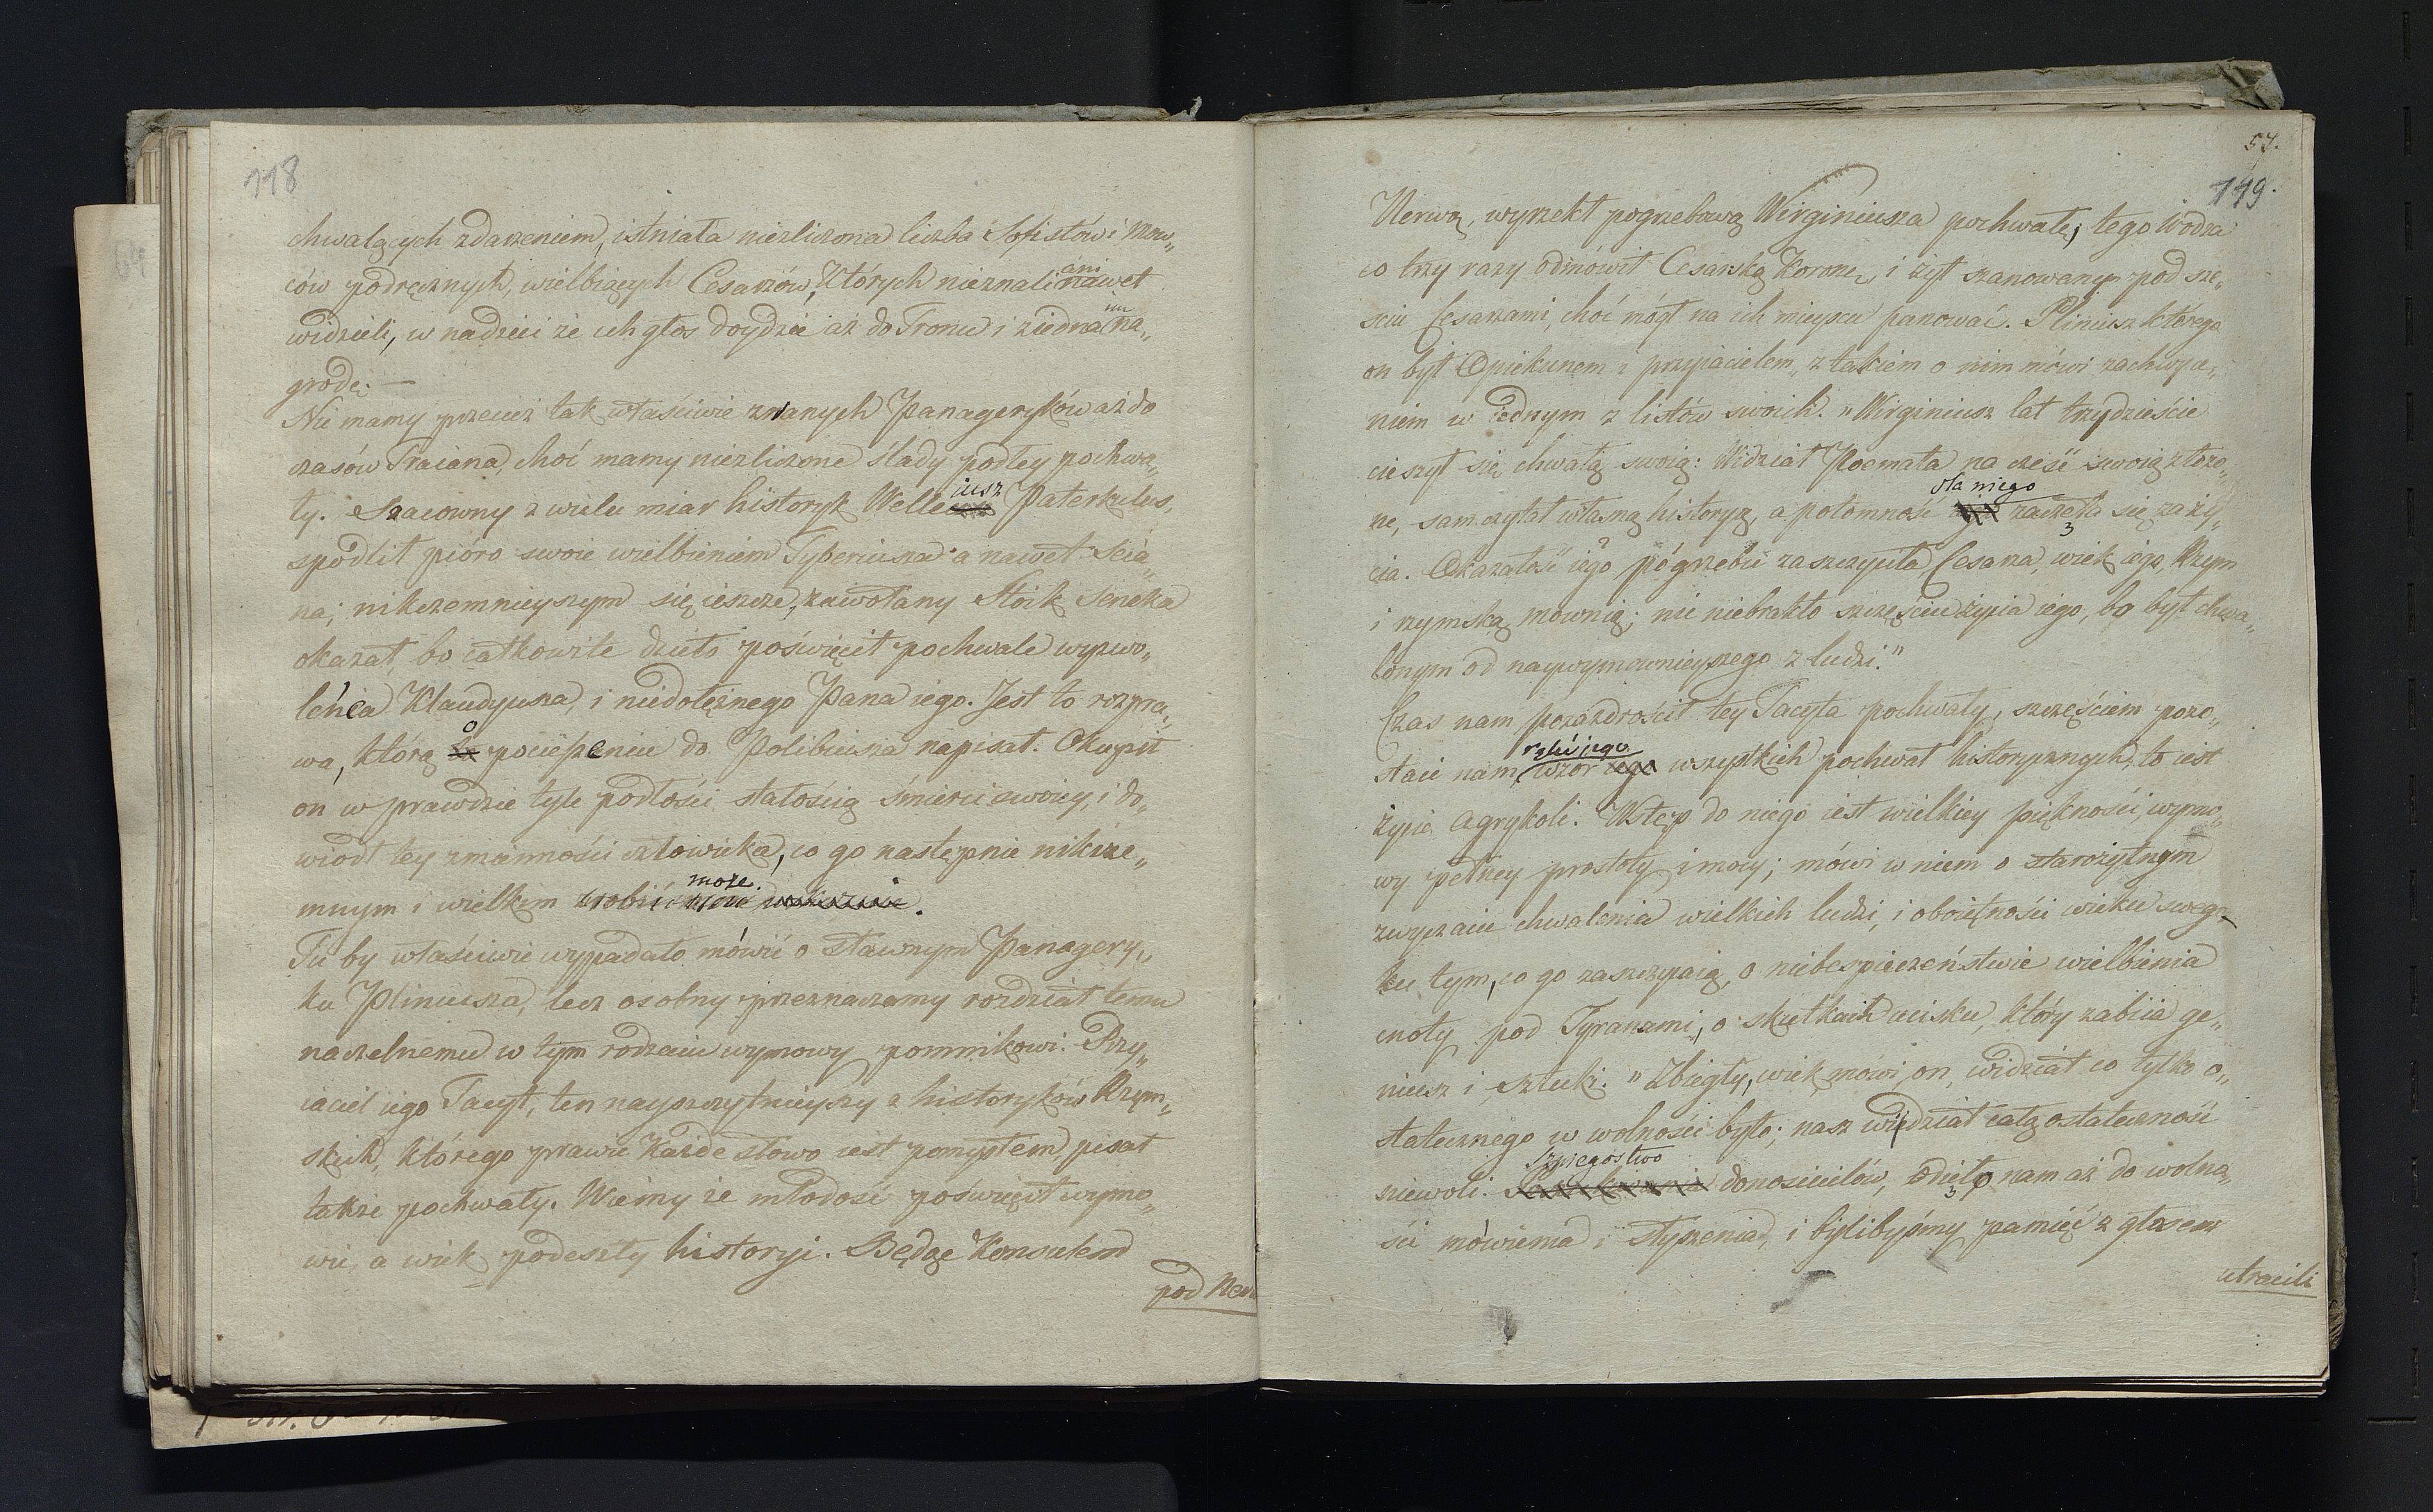 118
chwalących zdarzeniem, istniała niezliczona liczba Sofistów i Mow„
ców podręcznych, wielbiących Cesarzów, których nieznali ani nawet
widzieli, w nadziei że ich głos doydzie aż do Tronu i ziedna im na„
grodę. —
Nie mamy przecież tak właściwie zwanych Panageryków aż do
czasów Traiana, choć mamy niezliczone ślady podłey pochwa„
ły. Szacowny z wielu miar historyk Welleiusz Paterkulus,
spodlił pióro swoie wielbieniem Tyberiusza a nawet Seia„
na; nikczemnieyszym się ieszcze, zawołany Stoik Seneka
okazał, bo całkowite dzieło poświęcił pochwale wyzwo„
leńca Klaudyusza, i niedołężnego Pana iego. Jest to rozpra„
wa, którą o pocieszeniu do Polibiusza napisał. Okupił
on w prawdzie tyle podłości stałością śmierci swoiey, i do„
wiódł tey zmienności człowieka, co go następnie nikcze„
mnym i wielkim zrobić może.
Tu by właściwie wypadało mówić o sławnym Panagery„
ku Pliniusza, lecz osobny przeznaczamy rozdział temu
naczelnemu w tym rodzaiu wymowy pomnikowi. Przy„
iaciel iego Tacyt, ten nayszczytnieyszy z historyków Rzym„
skich, którego prawie każde słowo iest pomysłem, pisał
także pochwały. Wiemy że młodość poświęcił wymo„
wie, a wiek podeszły historyi. Będąc Konsulem
pod Ner
57.
119.
Nerwą, wyrzekł pogrzebową Wirginiusza pochwałę, tego Wodza
co trzy razy odmówił Cesarską Koronę, i żył szanowanym pod sze„
ściu Cesarzami, choć mógł na ich mieyscu panować. Pliniusz którego
on był Opiekunem i przyiacielem, z takiem o nim mówi zachwyce„
niem w iednym z listów swoich. „Wirginiusz lat trzydzieście
cieszył się chwałą swoią: Widział Poemata na cześć swoią złożo„
ne, sam czytał własną historyą, a potomność dla niego zaczęła się za ży„
cia. Okazałość iego pogrzebu zaszczyciła Cesarza, wiek iego, Rzym
i rzymską mownią; nic niebrakło szczęściu życia iego, bo był chwa„
lonym od naywymownieyszego z ludzi."
Czas nam pozazdrościł tey Tacyta pochwały, szczęściem pozo„
staie nam wzór wszystkich pochwał historycznych, to iest
życie Agrykoli. Wstęp do niego iest wielkiey piękności, wymo„
wy pełney prostoty i mocy; mówi w niem o starożytnym
zwyczaiu chwalenia wielkich ludzi, i oboiętności wieku swego
ku tym, co go zaszczycaią, o niebespieczeństwie wielbienia
cnoty pod Tyranami, o skutkach ucisku, który zabiia ge„
niusz i sztuki. „Zbiegły, wiek mówi on, widział co tylko o„
statecznego w wolności było; nasz widział całą ostateczność
niewoli. Szpiegostwo donosicielów, odieło nam aż do wolno„
ści mówienia i słyszenia, i bylibyśmy pamięć z głosem
utracili